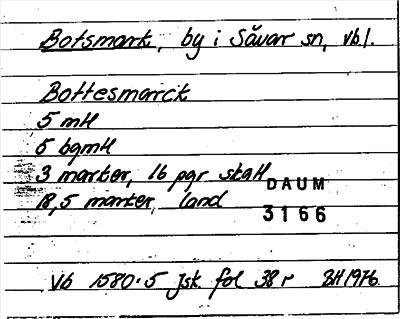 Botsmark, by i Sävar sn, vbl.
Bottesmarck
5 mtl
6 bgmtl
3 marker, 16 pgr skatt
18,5 marker, land
DAUM
3166
Vb 1580:5 Jsk fol 38 r BH 1976